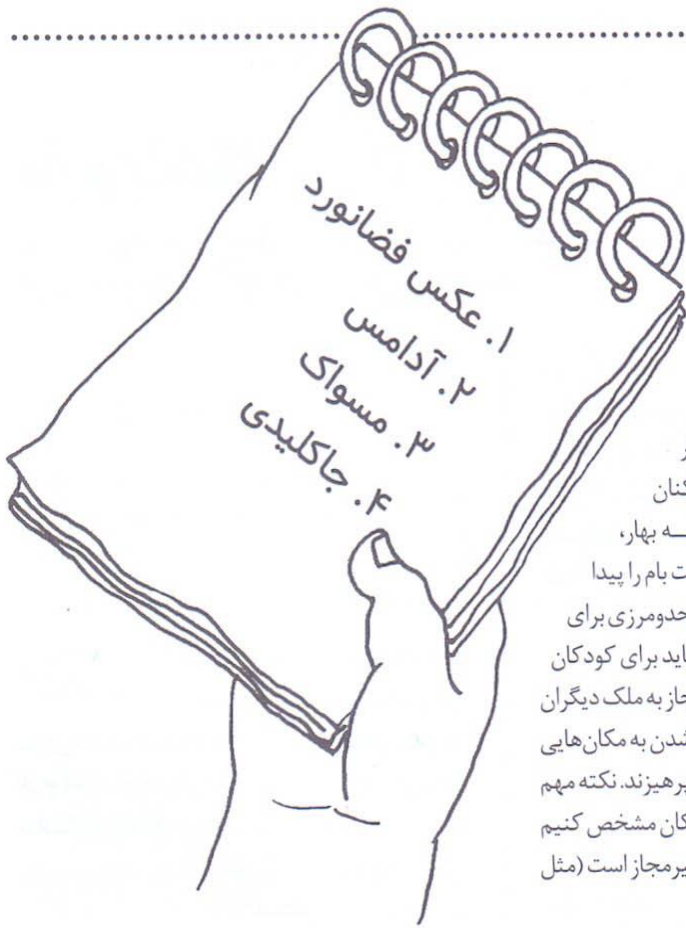 ۱. عکس فضانورد
۲. آدامس
۳. مسواک
۴. جاکلیدی
کنان
ه بهار،
ت بام را پیدا
حدومرزی برای
اید برای کودکان
جاز به ملک دیگران
شدن به مکان‌هایی
پرهیزند. نکته مهم
کان مشخص کنیم
یرمجاز است (مثل